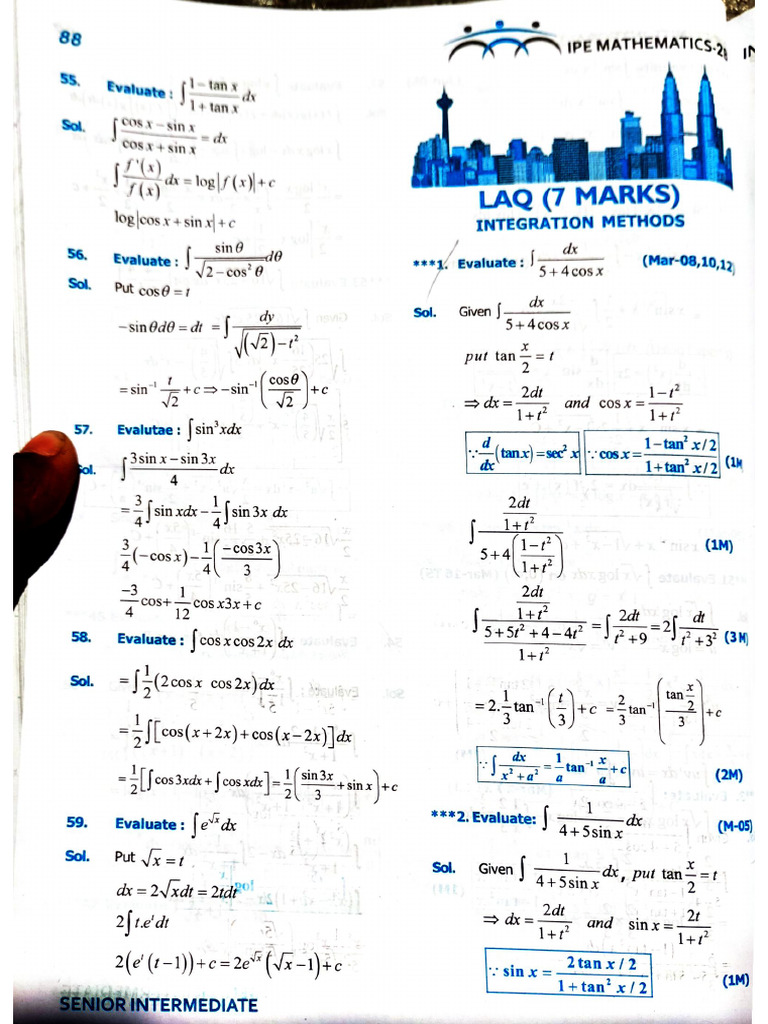 88
55. Evaluate : ∫ (1 − tan x)/(1 + tan x) dx
Sol. ∫ (cos x − sin x)/(cos x + sin x) = dx
∫ f '(x)/f(x) dx = log|f(x)| + c
log|cos x + sin x| + c
56. Evaluate : ∫ sin θ/√(2 − cos² θ) dθ
Sol. Put cos θ = t
−sin θdθ = dt = ∫ dy/√((√2) − t²)
= sin⁻¹ t/√2 + c ⇒ −sin⁻¹(cos θ/√2) + c
57. Evalutae : ∫ sin³ xdx
Sol. ∫ (3 sin x − sin 3x)/4 dx
= 3/4 ∫ sin xdx − 1/4 ∫ sin 3x dx
3/4 (−cos x) − 1/4 (−cos 3x/3)
−3/4 cos + 1/12 cos x3x + c
58. Evaluate : ∫ cos x cos 2x dx
Sol. = ∫ 1/2 (2 cos x cos 2x) dx
= 1/2 ∫ [cos(x + 2x) + cos(x − 2x)] dx
= 1/2 [∫ cos 3xdx + ∫ cos xdx] = 1/2 (sin 3x/3 + sin x) + c
59. Evaluate : ∫ e^√x dx
Sol. Put √x = t
dx = 2√x dt = 2tdt
2 ∫ t.eᵗ dt
2(eᵗ(t − 1)) + c = 2e^√x (√x − 1) + c
SENIOR INTERMEDIATE
IPE MATHEMATICS-2
LAQ (7 MARKS)
INTEGRATION METHODS
***1. Evaluate : ∫ dx/(5 + 4 cos x) (Mar-08,10,12)
Sol. Given ∫ dx/(5 + 4 cos x)
put tan x/2 = t
⇒ dx = 2dt/(1 + t²) and cos x = (1 − t²)/(1 + t²)
∵ d/dx (tan x) = sec² x ∵ cos x = (1 − tan² x/2)/(1 + tan² x/2) (1M
∫ (2dt/(1 + t²))/(5 + 4((1 − t²)/(1 + t²))) (1M)
∫ (2dt/(1 + t²))/((5 + 5t² + 4 − 4t²)/(1 + t²)) = ∫ 2dt/(t² + 9) = 2 ∫ dt/(t² + 3²) (3M)
= 2. 1/3 tan⁻¹(t/3) + c = 2/3 tan⁻¹((tan x/2)/3) + c
∵ ∫ dx/(x² + a²) = 1/a tan⁻¹ x/a + c (2M)
***2. Evaluate: ∫ 1/(4 + 5 sin x) dx (M-05)
Sol. Given ∫ 1/(4 + 5 sin x) dx, put tan x/2 = t
⇒ dx = 2dt/(1 + t²) and sin x = 2t/(1 + t²)
∵ sin x = (2 tan x/2)/(1 + tan² x/2) (1M)